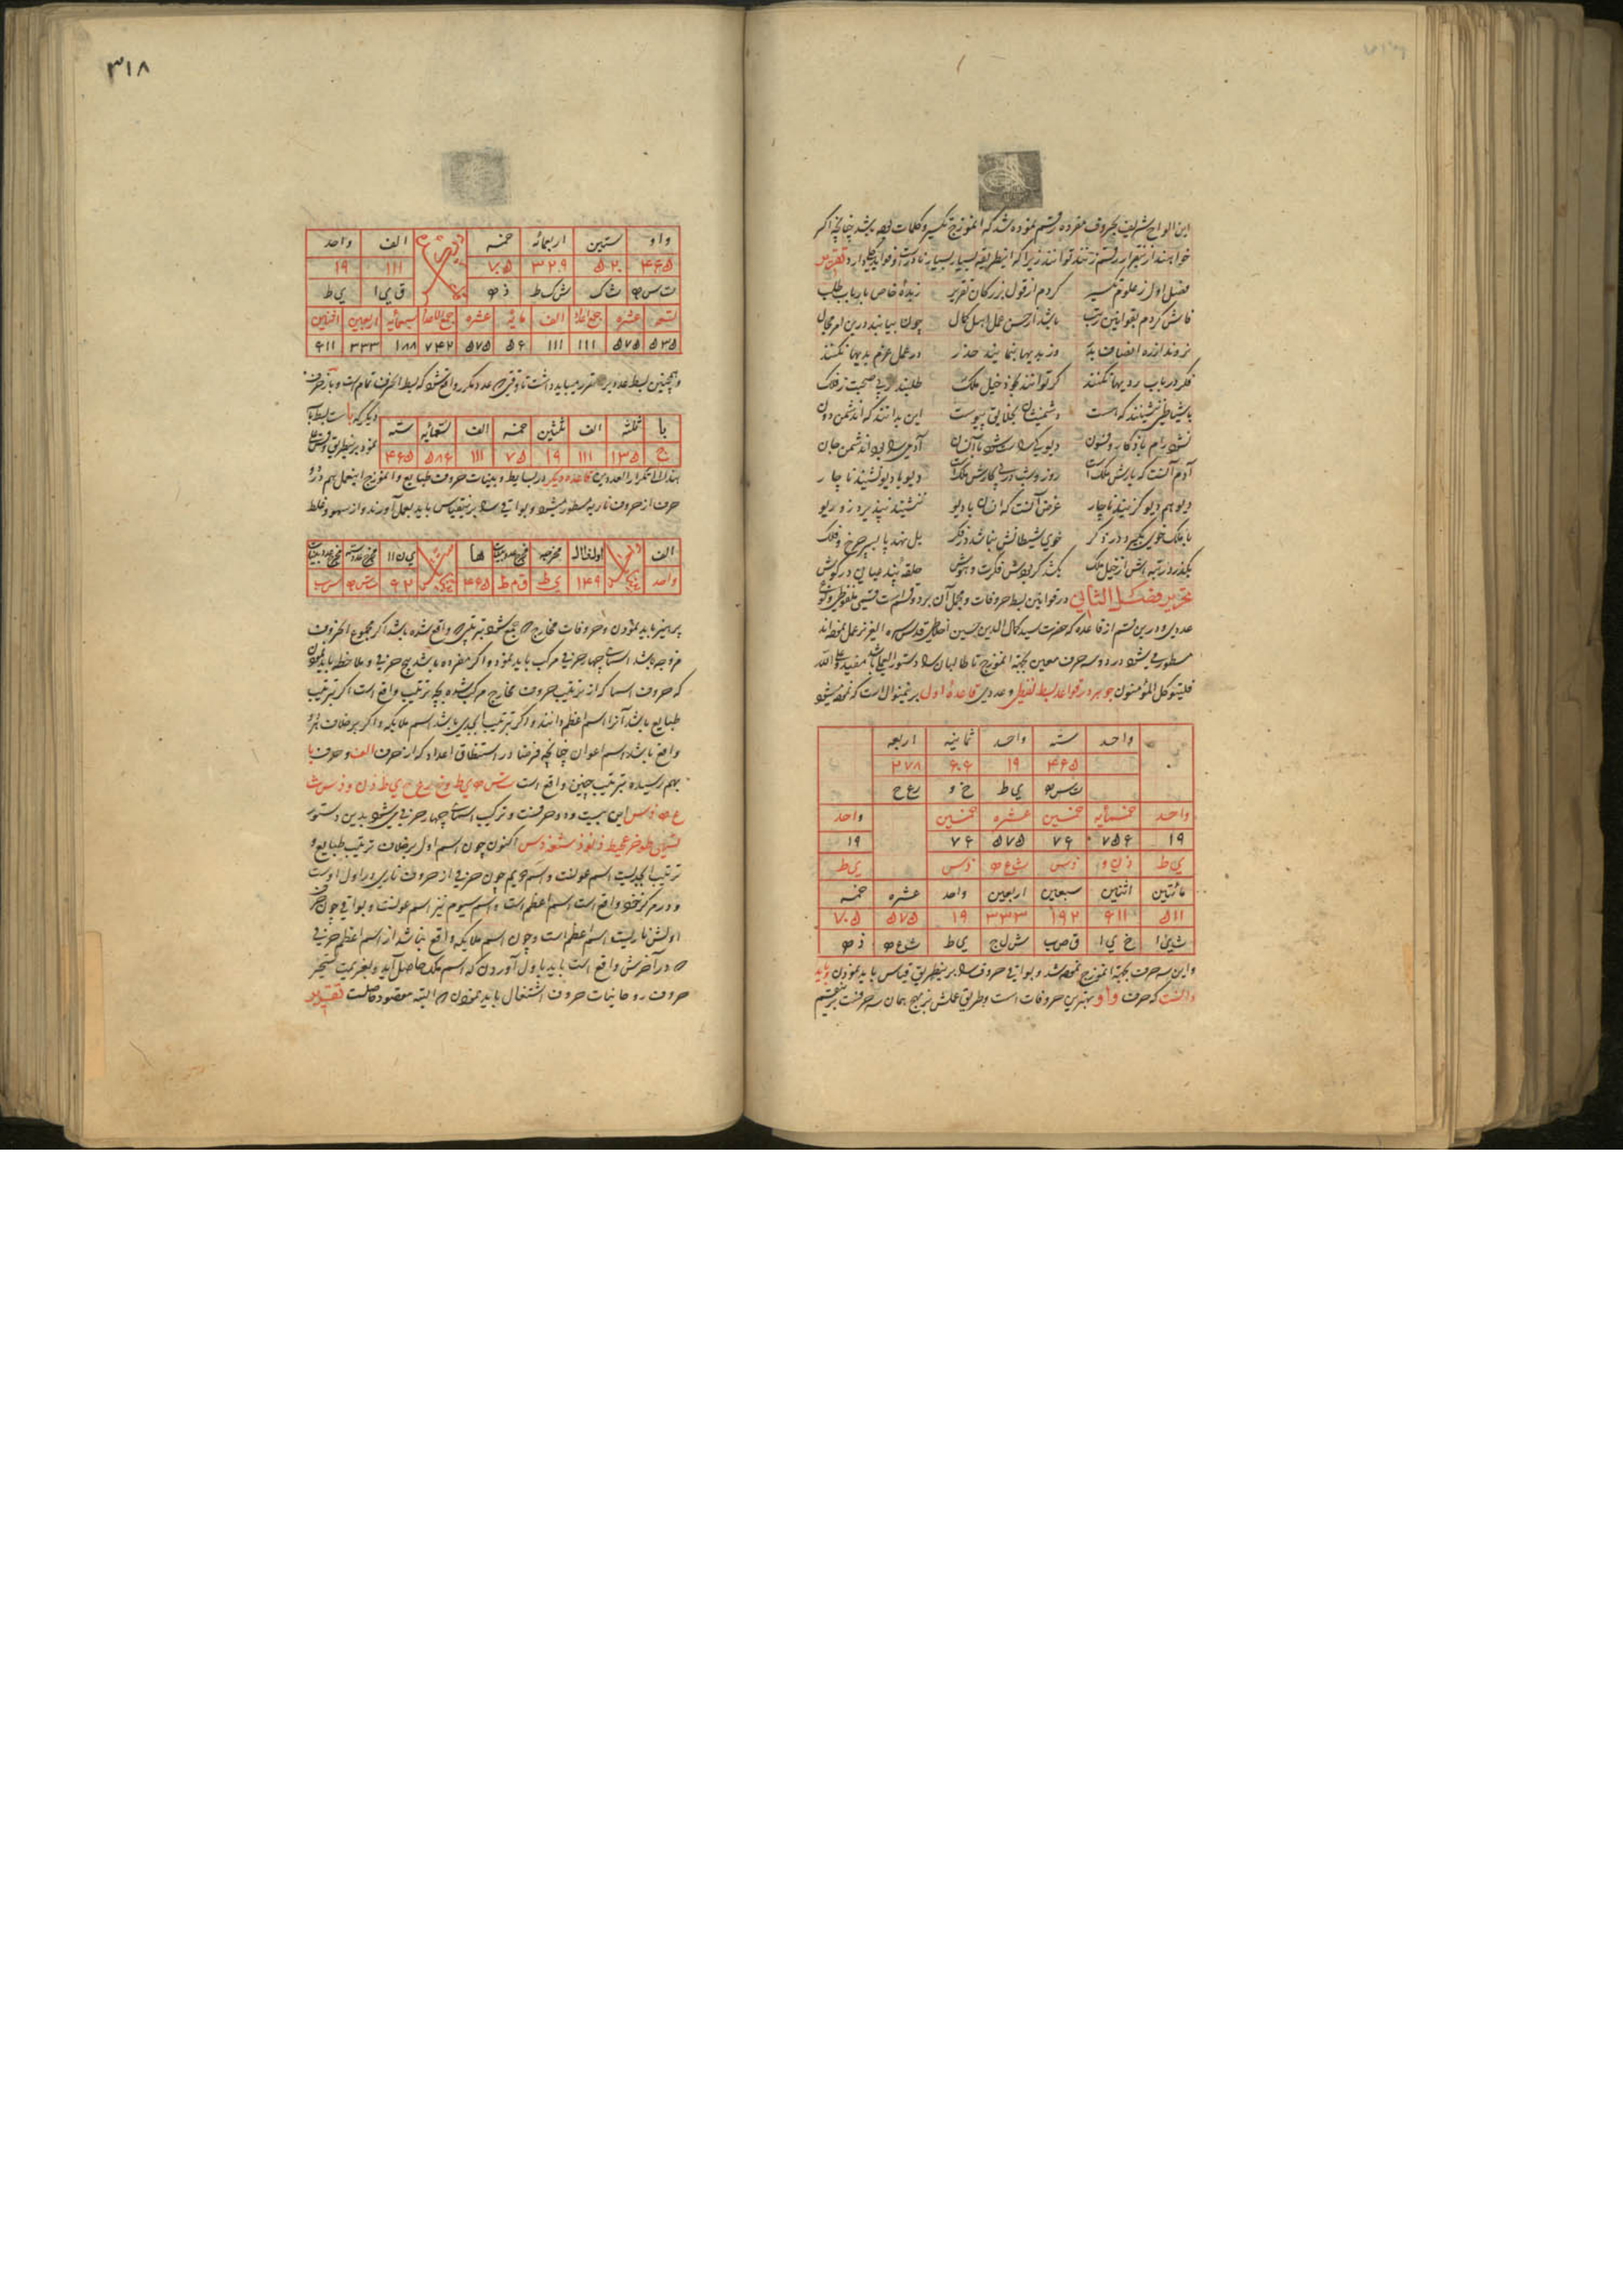 این الواح شریف بحروف مفرده رقم نموده شد که انموزج تکسیر و کلمات بوده باشد چنانچه اگر
خواهند از تیغرار رقم زنند توانند زیرا که اینطریقه بسیار بسیار نادرست و فواید کلی دارد تقریر
فصل اول ز علوم تکسیر کردم از قول بزرگان تقریر زبدهٔ خاص بارباب طلب
فاش کردم بقوانین رتب باشد از حسن عمل اهل کمال چون بیابند درین امر مجال
نروند از ره انصاف بدر وز بدیها بنمایند حذر در عمل عزم بدیها نکنند
فکر در باب ردیها نکنند گر توانند بخود خیل ملک طلبند از پی صحبت ز فلک
باشیاطین ننشینند که هست دشمنیشان بخلایق پیوست این بدانند که اندشمن دون
نشود رام باذکار و فسون دیو بیگانه شود با انسان آدمی را بود اندشمن جان
آدم آنست که یارش ملک است روز و شب در پی کارش ملک است دیو با دیو نشیند ناچار
دیو هم دیو گزیند ناچار غرض آنست که انسان با دیو ننشیند نپذیرد زو ریو
با ملک خوی بگیرد در ذکر خوی شیطانش نباشد در فکر بل نهد پا بسر چرخ و فلک
بگذرد رتبه اش از خیل ملک بکشد گر بودش فکرت و هوش حلقه بند عیانی در گوش
تحریر فصل الثانی در قوانین بسط حروفات و مجمل آن بر دو قسم است قسمی ملفوظی و نوع
عددی و درین قسم از قاعده که حضرت سید کمال الدین حسین اخلاطی قدس سره العزیز عمل نموده اند
مسطور می شود در دو سه حرف معین بجهة انموزج تا طالبان را دستور العمل باشد مفید و علی الله
فلیتوکل المؤمنون جوهر در قواعد بسط لفظی و عددی قاعدهٔ اول برینمنوال است که نموده میشود
ب واحد سته واحد ثمانیه اربعه
۴۶۵ ۱۹ ۶۰۶ ۲۷۸
ت س ه ی ط خ و ر ع ح
واحد خمسمائیه خمسین عشره خمسین واحد
۱۹ ۷۵۶ ۷۶ ۵۷۵ ۷۶ ۱۹
ی ط ذ ن و ی ط
مائتین اثنین سبعین اربعین واحد عشره خمسه
۵۱۱ ۶۱۱ ۱۹۲ ۳۳۳ ۱۹ ۵۷۵ ۷۰۵
ث ی ا خ ی ا ق ص ب ش ل ج ی ط ث ع ه ذ ه
و این سه حرف بجهة انموزج نموده شد و بواقی حروف را برینطریق قیاس باید نمودن و باید
دانست که حرف واو بهترین حروفات است و طریق عملش نیز بهمان سه حرفست برینقسم
۳۱۸
واو ستین اربمائه خمسه الف واحد
۴۶۵ ۵۲۰ ۳۲۹ ۷۰۵ ۱۱۱ ۱۹
ت س ه ث ک ش ک ط ذ ه ق ی ا ی ط
تسع عشره جمع اعداد الف مائه عشره سبعمائیه اربعین اثنین
۵۳۵ ۵۷۵ ۱۱۱ ۱۱۱ ۵۶ ۵۷۵ ۷۴۲ ۱۸۸ ۳۳۳ ۶۱۱
و همچنین بسط عددی را مقرر میباید داشت تا وقتی که عدد مکرر واقع شود که بسط الحرف تمام است و باز حرف
دیگر که با است بسط با
با ثلثه الف ثلثین خمسه الف تسعمائیه سته
ج ۱۳۵ ۱۱۱ ۱۹ ۷۵ ۱۱۱ ۵۸۶ ۴۶۵
نمود برینطریق
هذا لا تکرار العددین قاعده دیگر در بسایط و بینات حروف طبایع و انموزج اینعمل هم در دو
حرف از حروف ناریه مسطور میشود و بواقی را برینقیاس باید بعمل آورند و از سهو و غلط
الف اولدناله مخرجه ها ی ن ا ا
واحد ۱۴۹ ی ط ق م ط ۴۶۵ ۶۲ ت س ه س ب
پرهیز باید نمودن و حروفات مخارج که جمع شود بترتیبی که واقع شده باشد اگر مجموع الحروف
مزوجه باشد اسماء چهار حرفی مرکب باید نمود و اگر مفرده باشد پنج حرفی و ملاحظه باید نمودن
که حروف اسما که از ترتیب حروف مخارج مرکب شده بچه ترتیب واقع است اگر بترتیب
طبایع باشد آنرا اسم اعظم دانند و اگر بترتیب ابجدی باشد اسم ملایکه و اگر برخلاف هر دو
واقع باشد اسم اعوان چنانچه فرضا در استنطاق اعداد که از حرف الف و حرف با
بهم رسیده بترتیب چنین واقع است ت س ه ی ط خ و ر ع ح ی ط ذ ن و ذ س ث
ع ه و س این بیست و دو حرفست و ترکیب اسماء چهار حرفی می شود بدین دستور
اکنون چون اسم اول برخلاف ترتیب طبایع و
ترتیب ابجدیست اسم عونست و اسم دویم چون حرفی از حروف ناری در اول اوست
و در مرکز خود واقع است اسم اعظم است و اسم سیوم نیز اسم عونست و بواقی چون حرف
اولش ناریست اسم اعظم است و چون اسم ملایکه واقع نباشد از اسم اعظم حرفی
که در آخرش واقع است باید باول آوردن که اسم ملک حاصل آید و بعزیمت تسخیر
حروف روحانیات حروف اشتغال باید نمودن که البته مقصود حاصلست تقریر